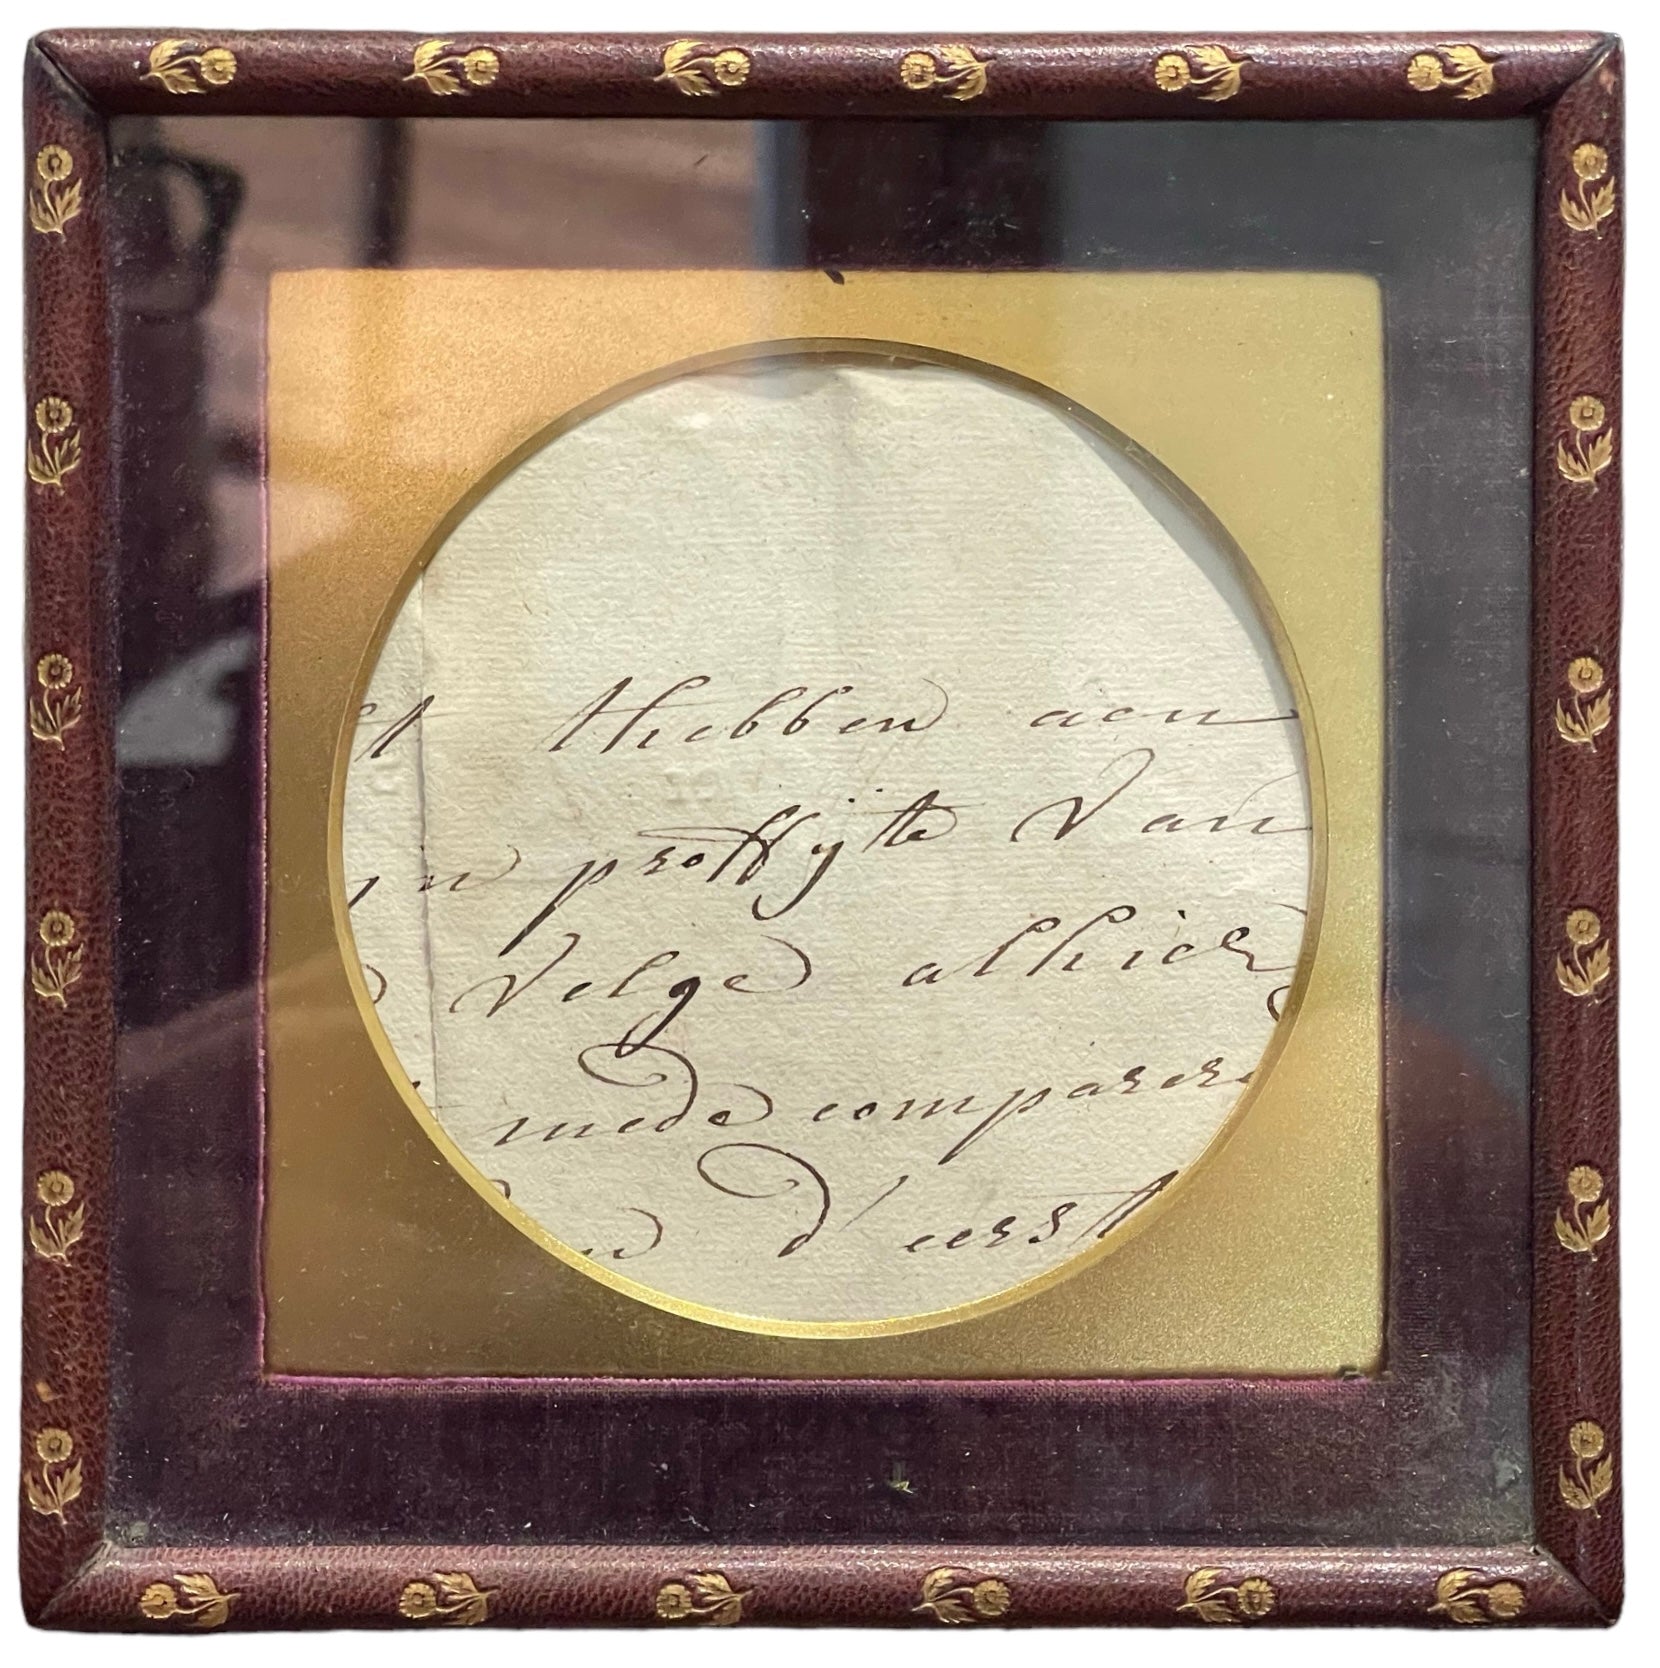 t thebben aen
yn proffijte Van
Velge alhier
mede comparer
d' eerst